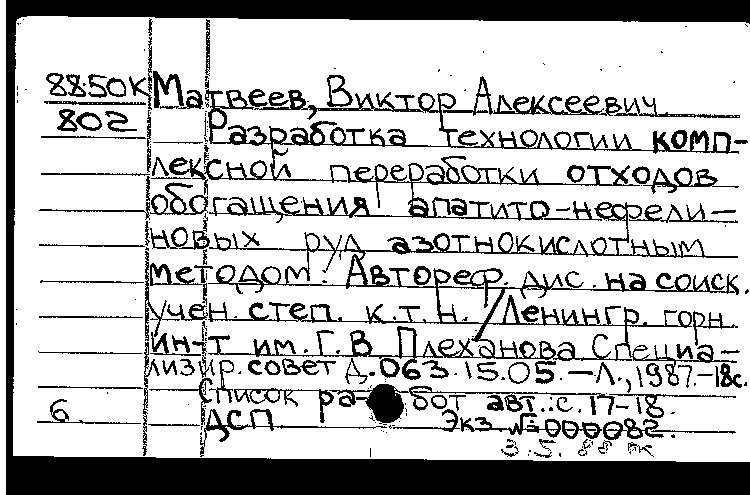 8850К Матвеев, Виктор Алексеевич
802 Разработка технологии комп-
лексной переработки отходов
обогащения апатито-нефели-
новых руд азотнокислотным
методом: Автореф. дис. на соиск.
учен. степ. к.т.н. / Ленингр. горн.
ин-т им. Г.В Плеханова Специа-
лизир. совет Д.063.15.05. - Л., 1987. - 18с.
Список ра- бот авт.: с. 17-18.
6 ДСП Экз №000082.
3.5.88